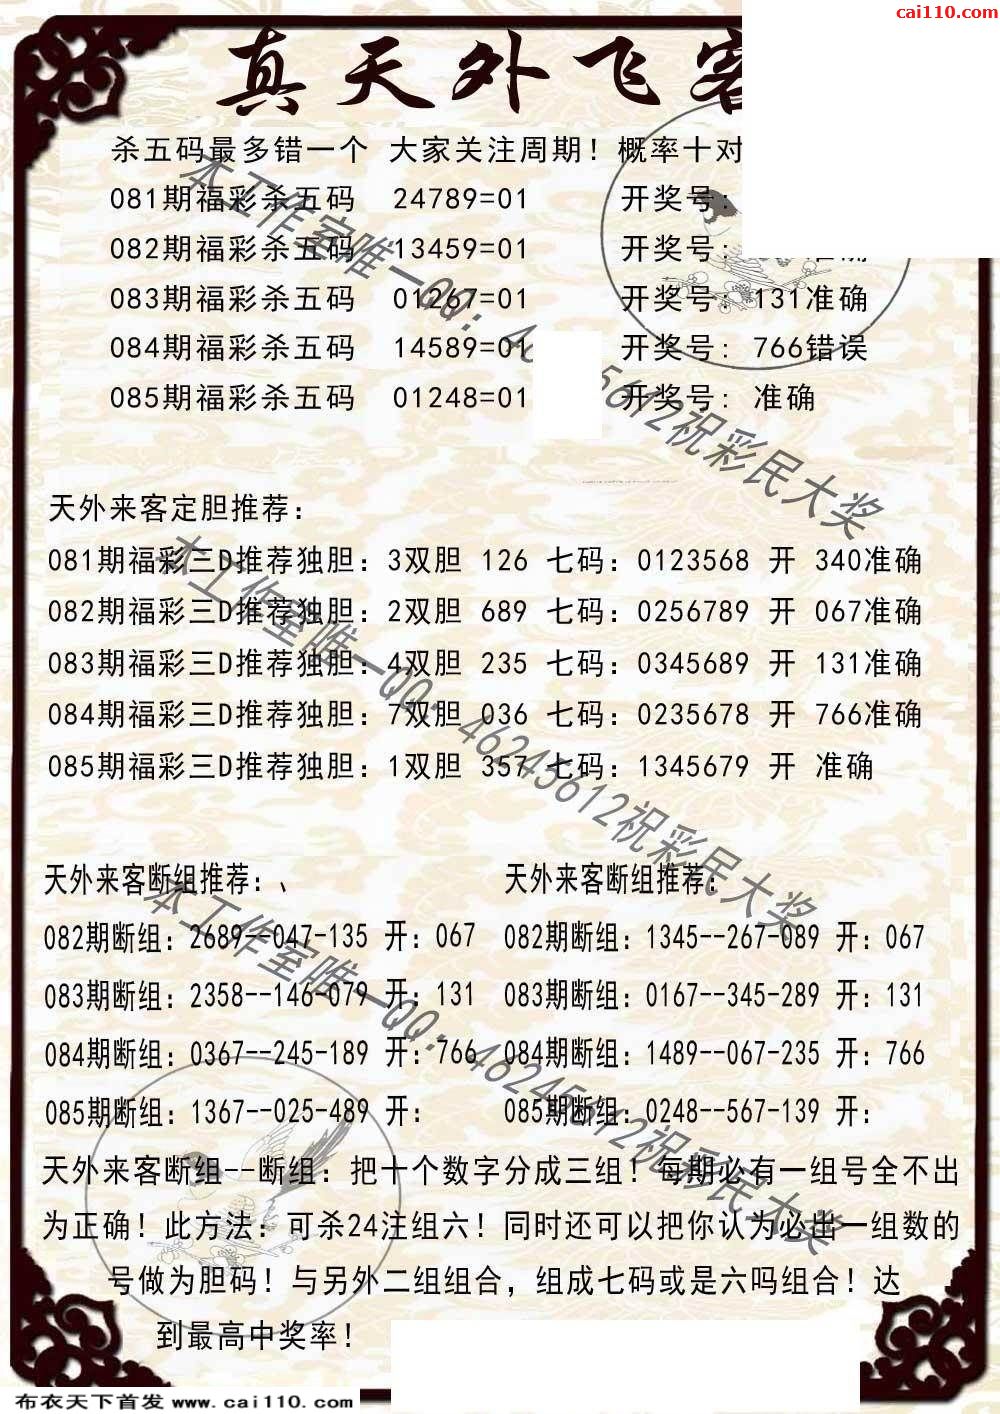 cai110.com
真天外飞客
杀五码最多错一个 大家关注周期！概率十对
081期福彩杀五码 24789=01 开奖号:
082期福彩杀五码 13459=01 开奖号: 准确
083期福彩杀五码 01267=01 开奖号: 131准确
084期福彩杀五码 14589=01 开奖号: 766错误
085期福彩杀五码 01248=01 开奖号: 准确
天外来客定胆推荐:
081期福彩三D推荐独胆: 3双胆 126 七码: 0123568 开 340准确
082期福彩三D推荐独胆: 2双胆 689 七码: 0256789 开 067准确
083期福彩三D推荐独胆: 4双胆 235 七码: 0345689 开 131准确
084期福彩三D推荐独胆: 7双胆 036 七码: 0235678 开 766准确
085期福彩三D推荐独胆: 1双胆 357 七码: 1345679 开 准确
天外来客断组推荐:、
082期断组: 2689--047-135 开: 067
083期断组: 2358--146-079 开: 131
084期断组: 0367--245-189 开: 766
085期断组: 1367--025-489 开:
天外来客断组推荐:
082期断组: 1345--267-089 开: 067
083期断组: 0167--345-289 开: 131
084期断组: 1489--067-235 开: 766
085期断组: 0248--567-139 开:
天外来客断组--断组: 把十个数字分成三组！每期必有一组号全不出
为正确！此方法: 可杀24注组六！同时还可以把你认为必出一组数的
号做为胆码！与另外二组组合，组成七码或是六吗组合！达
到最高中奖率！
本工作室唯一QQ: 46245612祝彩民大奖
本工作室唯一QQ: 46245612祝彩民大奖
本工作室唯一QQ: 46245612祝彩民大奖
布衣天下首发 www.cai110.com